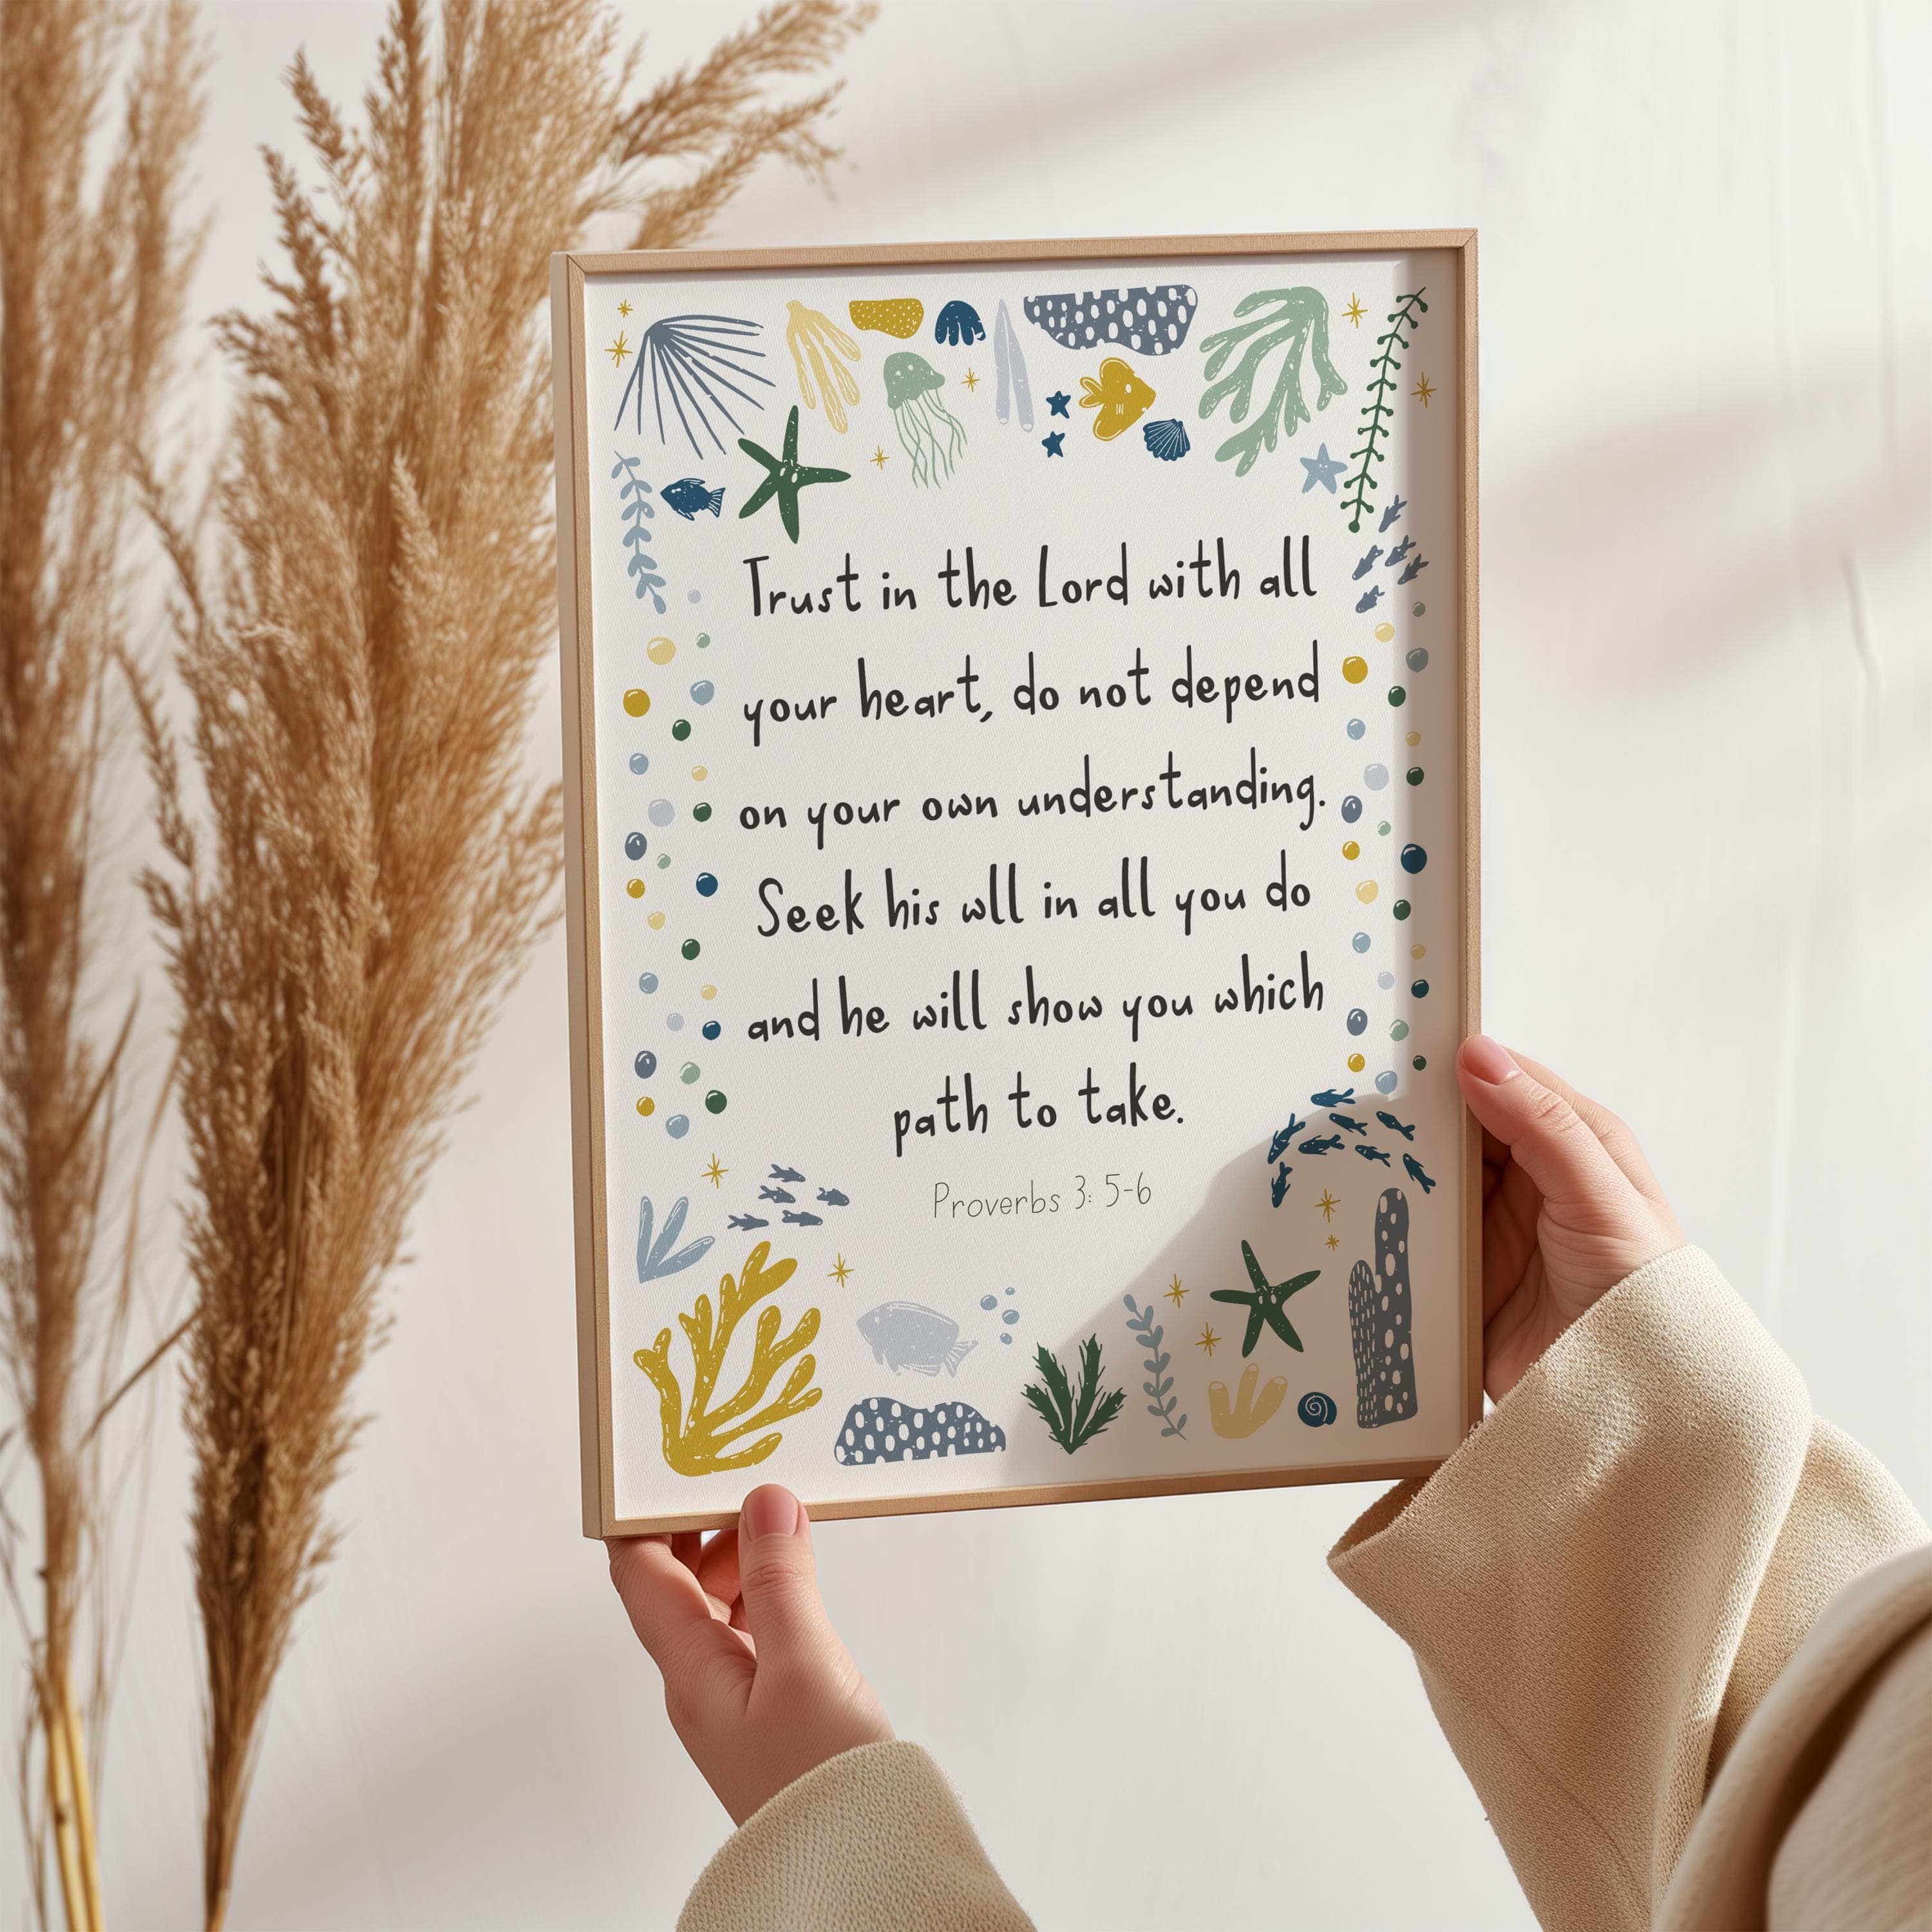 Trust in the Lord with all
your heart, do not depend
on your own understanding.
Seek his wll in all you do
and he will show you which
path to take.
Proverbs 3: 5-6